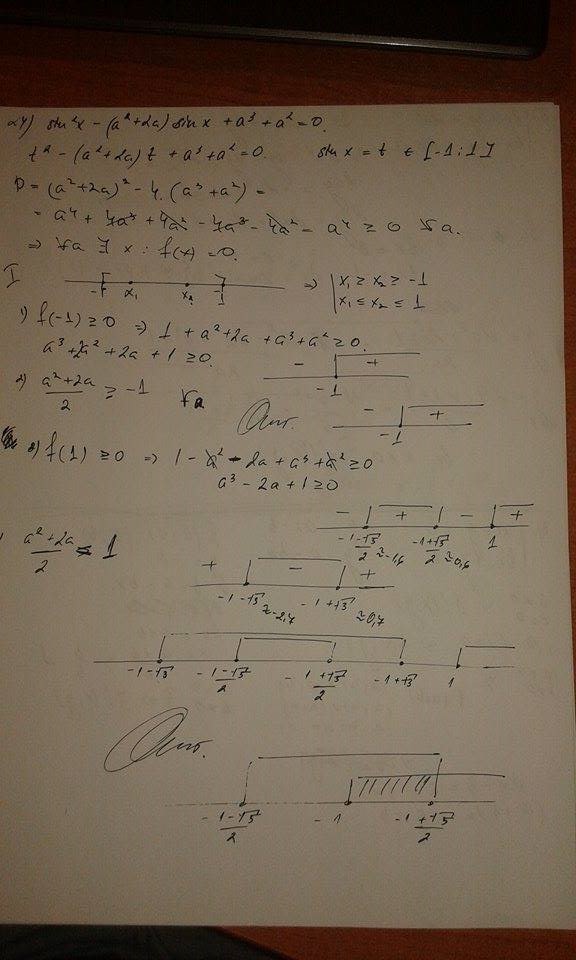 α4) sin²x - (a²+2a) sin x + a³ + a² = 0.
t² - (a²+2a) t + a³ + a² = 0. sin x = t ∈ [-1; 1]
D = (a²+2a)² - 4·(a³+a²) =
= a⁴ + 4a³ + 4a² - 4a³ - 4a² = a⁴ ≥ 0 ∀a.
⇒ ∀a ∃ x : f(x) = 0.
I -1 x₁ x₂ 1 ⇒ x₁ ≥ x₂ ≥ -1
x₁ ≤ x₂ ≤ 1
1) f(-1) ≥ 0 ⇒ 1 + a² + 2a + a³ + a² ≥ 0.
a³ + 2a² + 2a + 1 ≥ 0. - -1 +
2) (a²+2a)/2 ≥ -1 ∀a
- -1 +
3) f(1) ≥ 0 ⇒ 1 - a² - 2a + a³ + a² ≥ 0
a³ - 2a + 1 ≥ 0
- + - +
(-1-√5)/2 ≈ -1,6 (-1+√5)/2 ≈ 0,6 1
(a²+2a)/2 ≤ 1
+ - +
-1-√3 ≈ -2,7 -1+√3 ≈ 0,7
-1-√3 (-1-√5)/2 (-1+√5)/2 -1+√3 1
(-1-√5)/2 -1 (-1+√5)/2